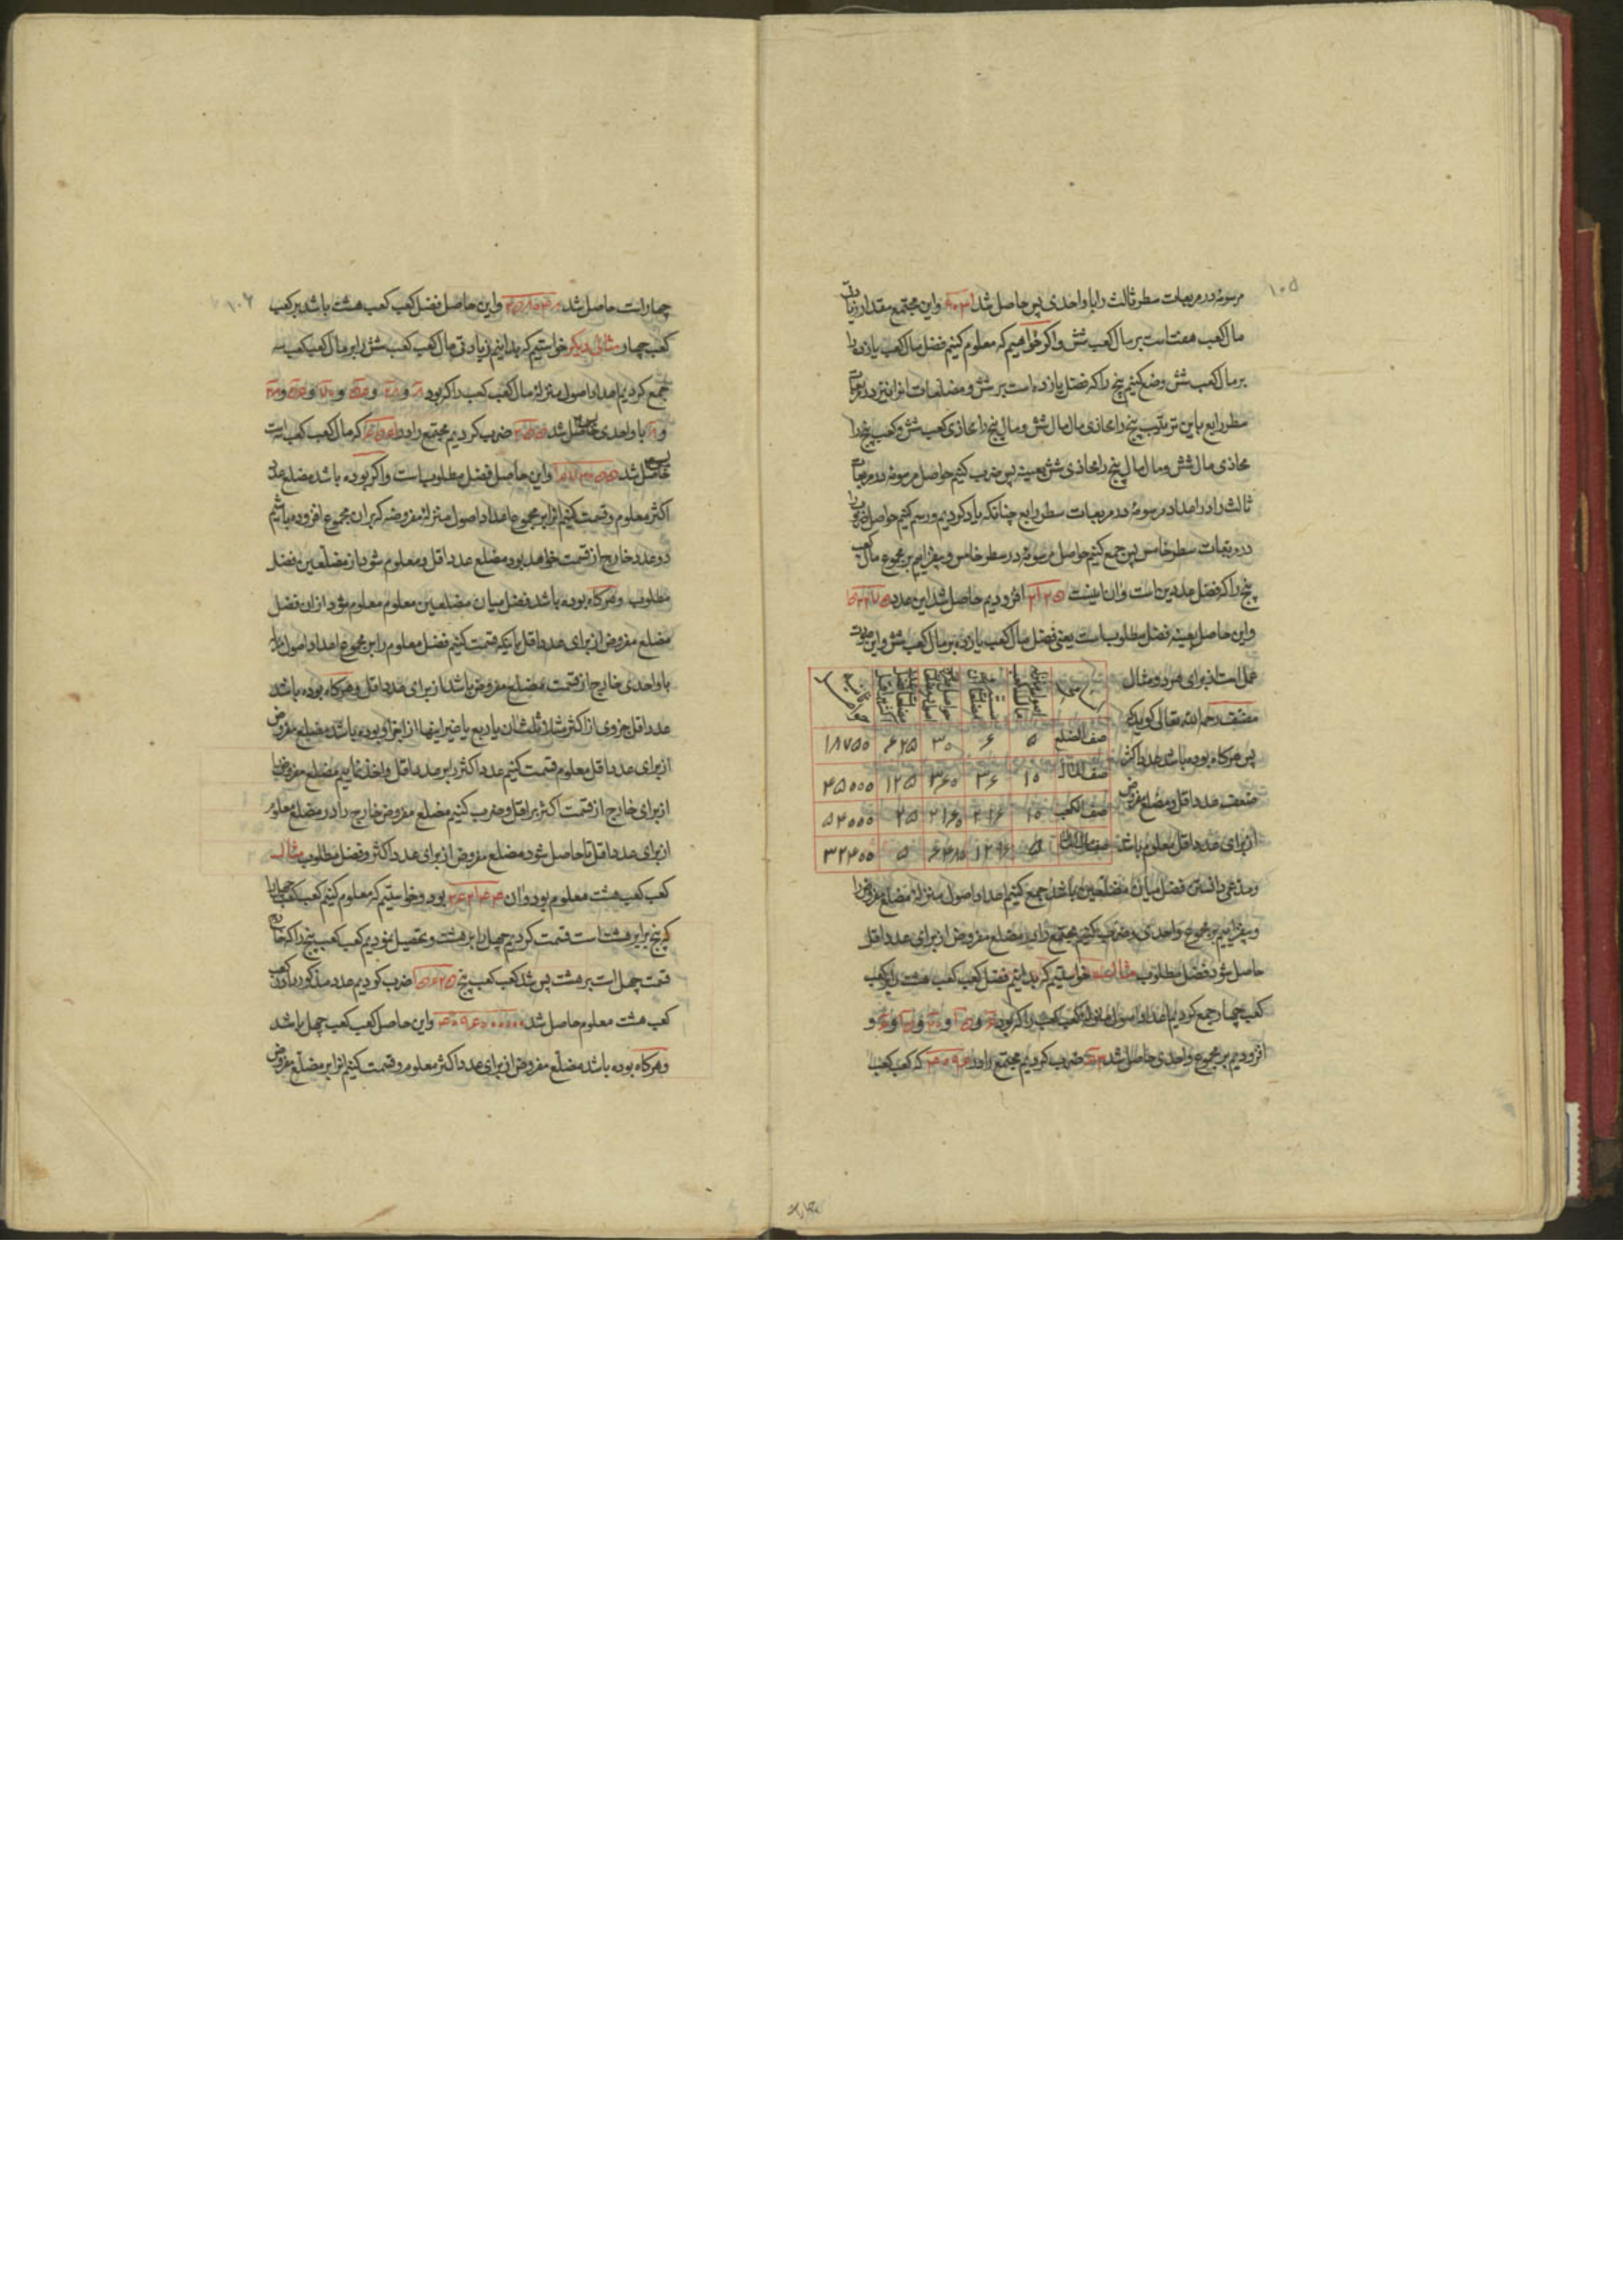 ۱۰۵
مرسومه در مربعات سطر ثالث را با واحدی پس حاصل شد ۹۰۳۱ واین مجتمع مقدار زیادتی
مال کعب هفت است بر مال کعب شش واکر خواهیم که معلوم کنیم فضل مال کعب یازده را
بر مال کعب شش وضع کنیم پنج را که فضل یازده است بر شش و مضلعات انرا نیز در مربعات
سطر رابع باین ترتیب پنج را محاذی مال مال شش و مال پنج را محاذی کعب شش و کعب پنج را
محاذی مال شش ومال مال پنج را محاذی شش بعینه پس ضرب کنیم حواصل مرسومه در مربعات
ثالث را در اعداد مرسومه در مربعات سطر رابع چنانکه یاد کردیم ورسم کنیم حواصل ضرب را
در مربعات سطر خامس پس جمع کنیم حواصل مرسومه در سطر خامس و بیفزاییم بر مجموع مال کعب
پنج را که فضل عددین است وان اینست ۳۱۲۵ افزودیم حاصل شد این عدد ۱۵۳۲۷۵
واین حاصل بعینه فضل مطلوب است یعنی فضل مال کعب یازده بر مال کعب شش واین صورت
عمل است از برای هر دو مثال
مصنف رحمه الله تعالی کوید که
پس هرکاه بوده باشد عدد اکثر
ضعف عدد اقل و مضلع مفروض
از برای عدد اقل معلوم باشد
صف الضلع ۵ ۶ ۳۰ ۶۲۵ ۱۸۷۵۰
صف المال ۱۰ ۳۶ ۳۶۰ ۱۲۵ ۴۵۰۰۰
صف الکعب ۱۰ ۲۱۶ ۲۱۶۰ ۲۵ ۵۴۰۰۰
صف مال المال ۵ ۱۲۹۶ ۶۴۸۰ ۵ ۳۲۴۰۰
ومدعی دانستن فضل میان مضلعین باشد جمع کنیم اعداد اصول منزله مضلع مفروض را
وبیفزاییم بر مجموع واحدی وضرب کنیم مجتمع را در مضلع مفروض از برای عدد اقل
حاصل شود فضل مطلوب مثال خواستیم که بدانیم فضل کعب کعب هشت را بر کعب
کعب چهار جمع کردیم اعداد اصول منزله کعب کعب را که بود ۶ و ۱۵ و ۲۰ و ۱۵ و ۶ و
افزودیم بر مجموع واحدی حاصل شد ۶۳ ضرب کردیم مجتمع را در ۴۰۹۶ که کعب کعب
۱۰۶
چهار است حاصل شد ۲۵۸۰۴۸ واین حاصل فضل کعب کعب هشت باشد بر کعب
کعب چهار مثالی دیکر خواستیم که بدانیم زیادتی مال کعب کعب شش را بر مال کعب کعب سه
جمع کردیم اعداد اصول منزله مال کعب کعب را که بود ۸ و ۲۸ و ۵۶ و ۷۰ و ۵۶ و ۲۸
و ۸ با واحدی حاصل شد ۲۵۵ ضرب کردیم مجتمع را در ۶۵۶۱ که مال کعب کعب سه است
حاصل شد واین حاصل فضل مطلوب است واکر بوده باشد مضلع عدد
اکثر معلوم وقسمت کنیم انرا بر مجموع اعداد اصول منزله مفروضه که بران مجموع افزوده باشیم
دو عدد خارج از قسمت خواهد بود مضلع عدد اقل ومعلوم شود از مضلعین فضل
مطلوب وهرکاه بوده باشد فضل میان مضلعین معلوم معلوم شود از ان فضل
مضلع مفروض از برای عدد اقل بانیکه قسمت کنیم فضل معلوم را بر مجموع اعداد اصول منزله
با واحدی خارج از قسمت مضلع مفروض باشد از برای عدد اقل وهرکاه بوده باشد
عدد اقل جزوی از اکثر مثلا ثلث ان یا ربع یا غیر اینها از اجزاء بوده باشد مضلع مفروض
از برای عدد اقل معلوم قسمت کنیم عدد اکثر را بر عدد اقل واخذ نماییم مضلع مفروض را
از برای خارج از قسمت اکثر بر اقل وضرب کنیم مضلع مفروض خارج را در مضلع معلوم
از برای عدد اقل تا حاصل شود مضلع مفروض از برای عدد اکثر وفضل مطلوب مثال
کعب کعب هشت معلوم بود وان ۲۶۲۱۴۴ بود وخواستیم که معلوم کنیم کعب کعب چهل را
که پنج برابر هشت است قسمت کردیم چهل را بر هشت وتحصیل نمودیم کعب کعب پنج را که خارج
قسمت چهل است بر هشت پس شد کعب کعب پنج ۱۵۶۲۵ ضرب کردیم عدد مذکور را در کعب
کعب هشت معلوم حاصل شد ۴۰۹۶۰۰۰۰۰۰ واین حاصل کعب کعب چهل باشد
وهرکاه بوده باشد مضلع مفروض از برای عدد اکثر معلوم وقسمت کنیم انرا بر مضلع مفروض